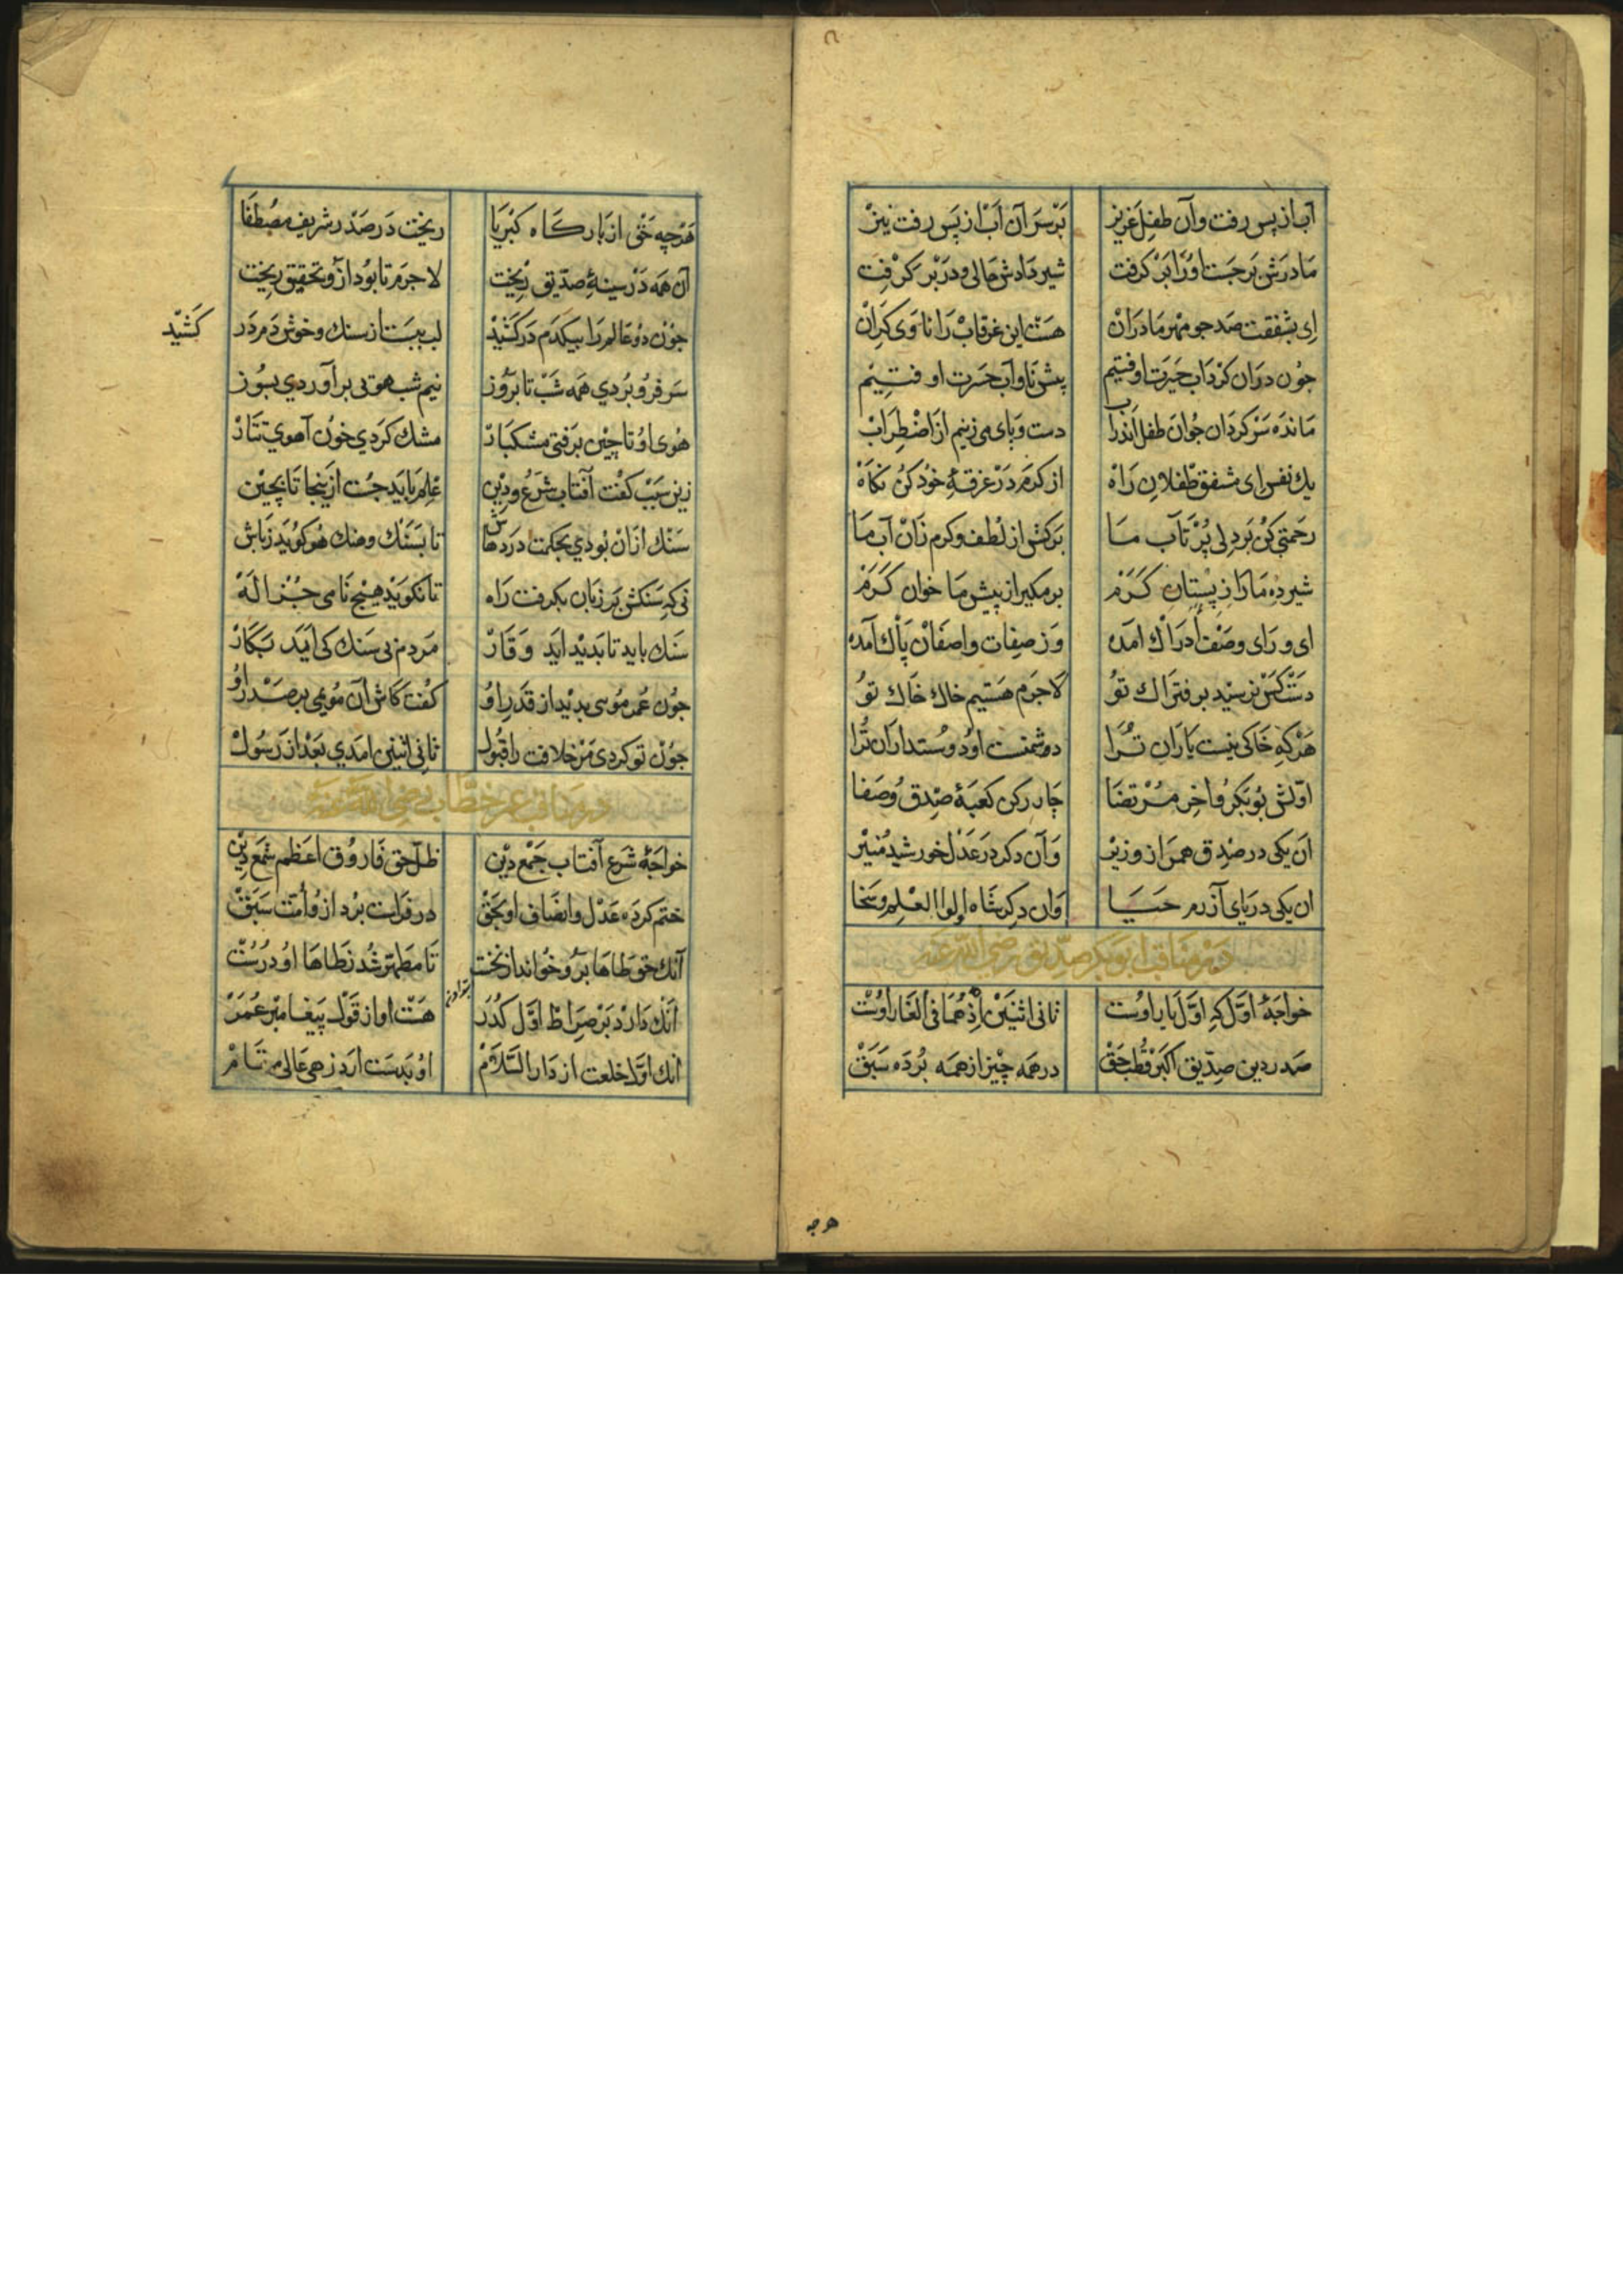 آب از پس رفت وآن طفل عزیز برسر آن آب از پس رفت نیز
مادرش برجست اورا برکرفت شیر دادش حالی ودربر کرفت
ای بشفقت صد جو مهر مادران هست این غرقاب را ناوی کران
جون دران کرداب حیرت اوفتیم پیش ناو آب حسرت اوفتیم
مانده سرکردان جوان طفل اندراب دست وبای می زنیم از اضطراب
یك نفس ای مشفق طفلان راه از کرم در غرقۀ خود کن نکاه
رحمتی کن بردلی پرتآب ما برکش از لطف وکرم زان آب ما
شیرده مارا ز پستان کرم برمکیر از پیش ما خوان کرم
ای ورای وصف ادراك امده وز صفات واصفان پاك آمده
دست کس نرسید بر فتراك تو لاجرم هستیم خاك خاك تو
هرکه خاکی نیست یاران ترا دشمنست او دوستداران ترا
اولش بوبکر واخر مرتضا چار رکن کعبۀ صدق وصفا
ان یکی در صدق همراز وزیر وآن دکر در عدل خورشید منیر
ان یکی دریای آزرم حیا وان دکر شاه اولوا العلم وسخا
در مناقب ابوبکر صدیق رضی الله عنه
خواجۀ اول که اول یار اوست ثانی اثنین اذ هما فی الغار اوست
صدر دین صدیق اکبر قطب حق در همه چیز از همه برده سبق
هرجه
هرچه حق از بارکاه کبریا ریخت در صدر شریف مصطفا
آن همه در سینۀ صدیق ریخت لاجرم تابود ازو تحقیق ریخت
جون دو عالم را بیکدم درکشید لب ببست از سنك وخوش دم در
کشید
سر فرو بردی همه شب تا بروز نیم شب هوئی برآوردی بسوز
هوی او تا چین برفتی مشکبار مشك کردی خون آهوی تتار
زین سبب کفت آفتاب شرع ودین علم باید جست ازینجا تا بچین
سنك ازان بودی بحکمت در دهانش تا بسنك وهنك هو کوید زبانش
نی که سنکش بر زبان بکرفت راه تا نکوید هیچ نامی جز اله
سنك باید تا بدید اید وقار مردم بی سنك کی اید بکار
جون عمر موسی بدید از قدر او کفت کاش آن مویمی بر صدر او
جون تو کردی مر خلافت را قبول ثانی اثنین امدی بعد از رسول
در مناقب عمر خطاب رضی الله عنه
خواجۀ شرع آفتاب جمع دین ظل حق فاروق اعظم شمع دین
ختم کرده عدل وانصاف او بحق در فراست برد از وامت سبق
آنك حق طاها برو خواند از نخست تا مطهر شد زطاها او درست
آنك دارد بر صراط اول کذر هست او از قول پیغامبر عمر
انك اول خلعت از دار السلام او بدست ارد زهی عالی مقام